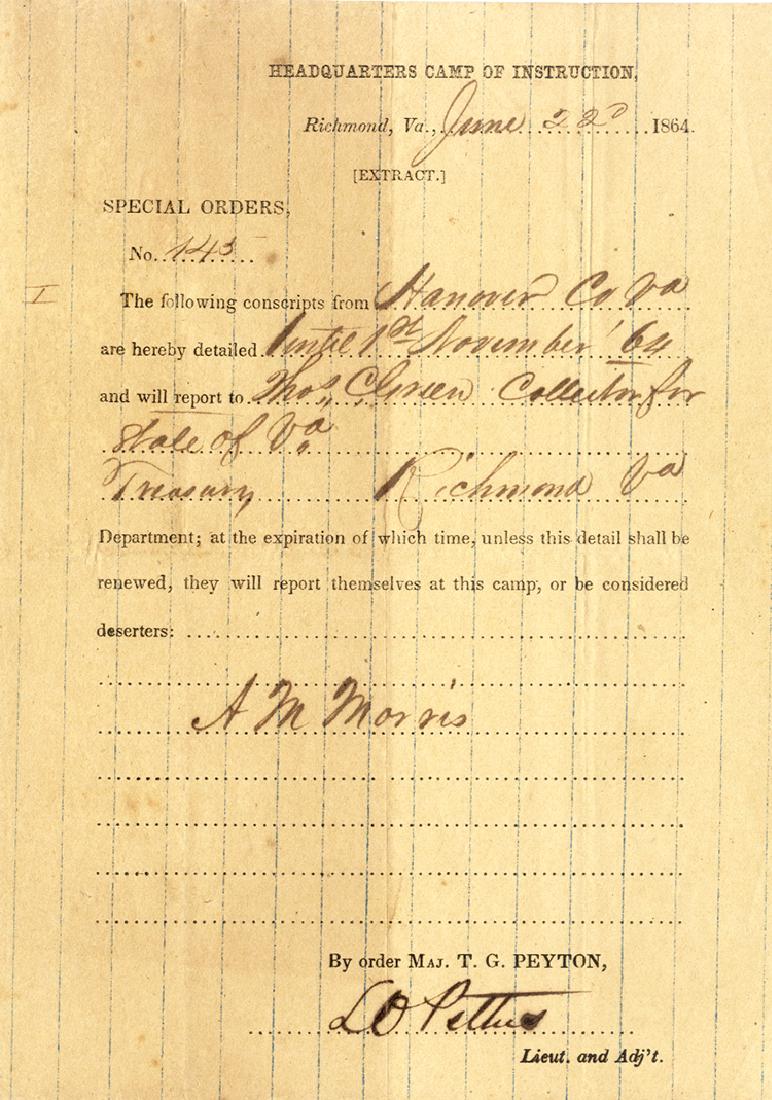 HEADQUARTERS CAMP OF INSTRUCTION,
Richmond, Va., June 22d 1864.
[EXTRACT.]
SPECIAL ORDERS,
No. 145
I The following conscripts from Hanover Co Va
are hereby detailed until 1st November '64
and will report to Thos. C. Green Collector for
State of Va
Treasury Richmond Va
Department; at the expiration of which time, unless this detail shall be
renewed, they will report themselves at this camp, or be considered
deserters:
A M Morris
By order MAJ. T. G. PEYTON,
L O Pettus
Lieut. and Adj't.